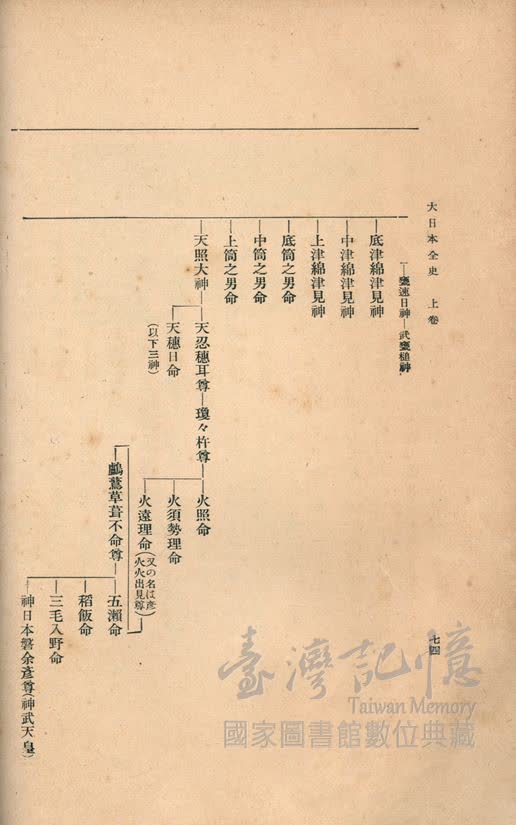 大日本全史 上卷
甕速日神―武甕槌神
底津綿津見神
中津綿津見神
上津綿津見神
底筒之男命
中筒之男命
上筒之男命
天照大神
天忍穗耳尊―瓊々杵尊
天穗日命
(以下三神)
火照命
火須勢理命
火遠理命(又の名は彥火火出見尊)
鸕鶿草葺不命尊
五瀨命
稻飯命
三毛入野命
神日本磐余彥尊(神武天皇)
七四
臺灣記憶
Taiwan Memory
國家圖書館數位典藏